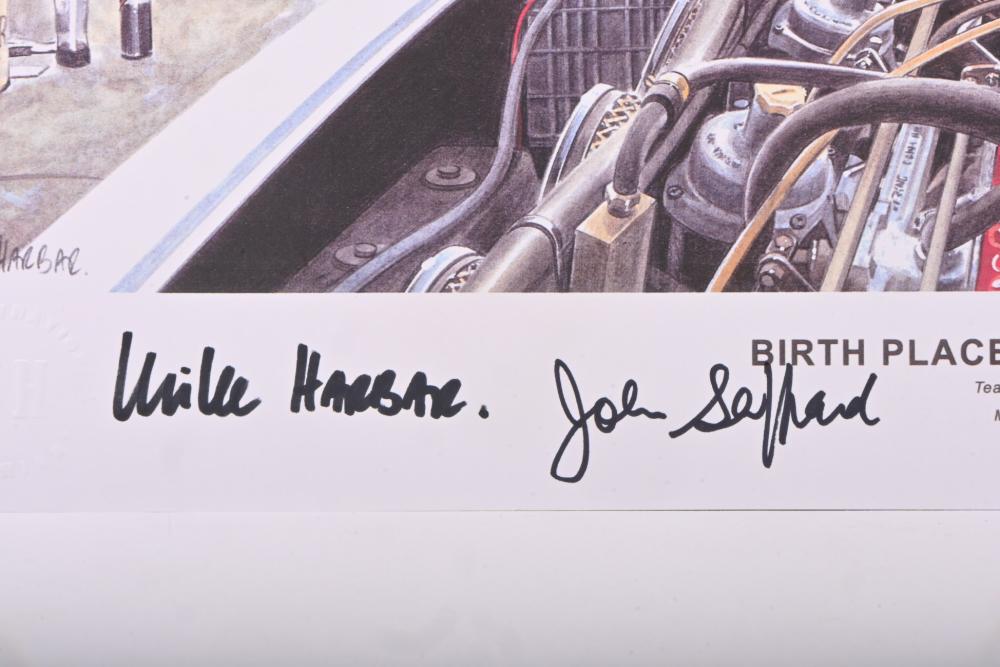 HARBAR.
Mike HARBAR. John Sheppard
BIRTH PLACE
Tea
M